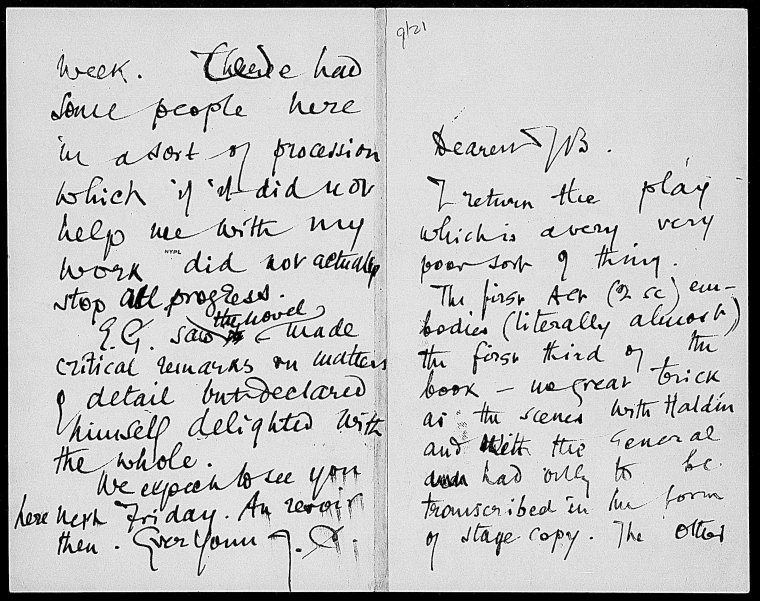 week. had
some people here
in a sort of procession
which if it did not
help me with my
work did not actually
NYPL
stop all progress.
the novel
E.G. saw made
critical remarks on matters
of detail but declared
himself delighted with
the whole.
We expect to see you
here next Friday. Au revoir
then. Ever Yours J.C.
9/21
Dearest JB.
I return the play
which is a very very
poor sort of thing.
The first Act (2 sc) em-
bodies (literally almost)
the first third of the
book – no great trick
as the scenes with Haldin
and with the General
had only to be
transcribed in the form
of stage copy. The other